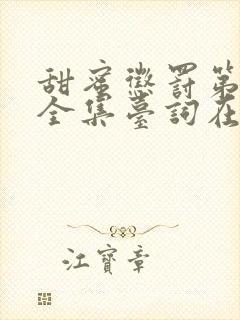 甜蜜懲罰第
全集臺詞在
江寶章